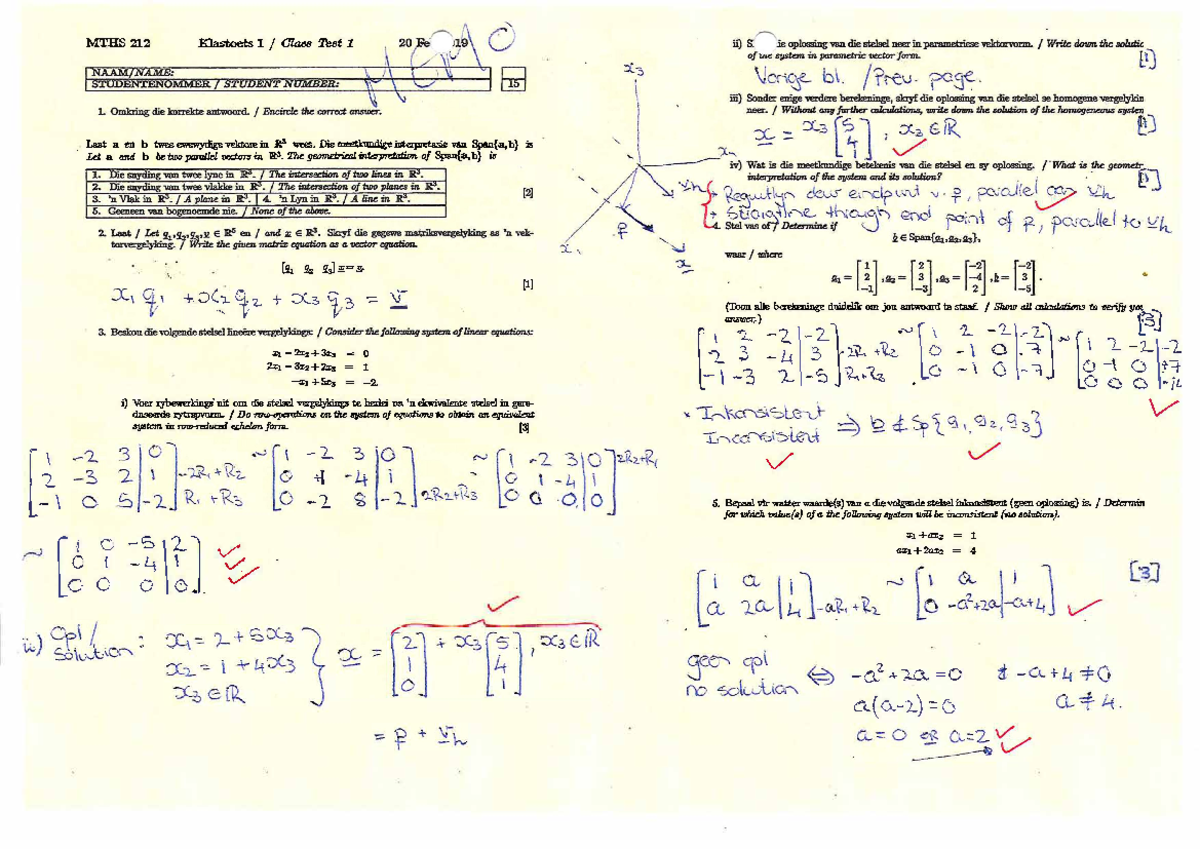 MTHS 212 Klastoets 1 / Class Test 1 20 Fe 19
MEMO
NAAM/NAME:
STUDENTENOMMER / STUDENT NUMBER: 15
1. Omkring die korrekte antwoord. / Encircle the correct answer.
Laat a en b twee ewewydige vektore in R³ wees. Die meetkundige interpretasie van Span{a,b} is
Let a and b be two parallel vectors in R³. The geometrical interpretation of Span{a,b} is
1. Die snyding van twee lyne in R³. / The intersection of two lines in R³.
2. Die snyding van twee vlakke in R³. / The intersection of two planes in R³.
3. 'n Vlak in R³. / A plane in R³. 4. 'n Lyn in R³. / A line in R³.
5. Geeneen van bogenoemde nie. / None of the above.
[2]
2. Laat / Let q₁,q₂,q₃,v ∈ R⁵ en / and x ∈ R³. Skryf die gegewe matriksvergelyking as 'n vek-
torvergelyking. / Write the given matrix equation as a vector equation.
[q₁ q₂ q₃] x = v.
[1]
x₁q₁ + x₂q₂ + x₃q₃ = v
3. Beskou die volgende stelsel lineêre vergelykings: / Consider the following system of linear equations:
x₁ − 2x₂ + 3x₃ = 0
2x₁ − 3x₂ + 2x₃ = 1
−x₁ + 5x₃ = −2
i) Voer rybewerkings uit om die stelsel vergelykings te herlei na 'n ekwivalente stelsel in gere-
duseerde rytrapvorm. / Do row-operations on the system of equations to obtain an equivalent
system in row-reduced echelon form. [3]
[1 -2 3 | 0 ~ [1 -2 3 | 0 ~ [1 -2 3 | 0 2R2+R1
2 -3 2 | 1 -2R1+R2 0 1 -4 | 1 0 1 -4 | 1
-1 0 5 | -2] R1+R3 0 -2 8 | -2] 2R2+R3 0 0 0 | 0]
~ [1 0 -5 | 2
0 1 -4 | 1
0 0 0 | 0]
ii) Opl / Solution: x₁ = 2 + 5x₃
x₂ = 1 + 4x₃
x₃ ∈ R
x = [2 1 0] + x₃ [5 4 1], x₃ ∈ R
= p + vh
ii) S ie oplossing van die stelsel neer in parametriese vektorvorm. / Write down the solutic
of the system in parametric vector form. [1]
Vorige bl. / Prev. page.
iii) Sonder enige verdere berekeninge, skryf die oplossing van die stelsel se homogene vergelykin
neer. / Without any further calculations, write down the solution of the homogeneous systen
[1]
x = x₃ [5 4 1], x₃ ∈ R
iv) Wat is die meetkundige betekenis van die stelsel en sy oplossing. / What is the geometr
interpretation of the system and its solution? [1]
x₃
x₂
x₁
vh
p
x
* Reguitlyn deur eindpunt v. p, parallel aan vh
* Straightline through end point of p, parallel to vh
4. Stel vas of / Determine if
b ∈ Span{a₁,a₂,a₃},
waar / where
a₁ = [1 2 −1], a₂ = [2 3 −3], a₃ = [−2 −4 2], b = [−2 3 −5].
(Toon alle berekeninge duidelik om jou antwoord te staaf. / Show all calculations to verify you
answer.) [3]
[1 2 -2 | -2 ~ [1 2 -2 | -2 ~ [1 2 -2 | -2
2 3 -4 | 3 -2R1+R2 0 -1 0 | 7 0 -1 0 | +7
-1 -3 2 | -5] R1+R3 0 -1 0 | -7] 0 0 0 | -14]
* Inkonsistent
Inconsistent ⇒ b ∉ Sp{a₁, a₂, a₃}
5. Bepaal vir watter waarde(s) van a die volgende stelsel inkonsistent (geen oplossing) is. / Determin
for which value(s) of a the following system will be inconsistent (no solution).
x₁ + ax₂ = 1
ax₁ + 2ax₂ = 4
[3]
[1 a | 1 ~ [1 a | 1
a 2a | 4] -aR1+R2 0 -a²+2a | -a+4]
geen opl
no solution ⇔ -a² + 2a = 0 & -a + 4 ≠ 0
a(a-2) = 0 a ≠ 4.
a = 0 OR a = 2